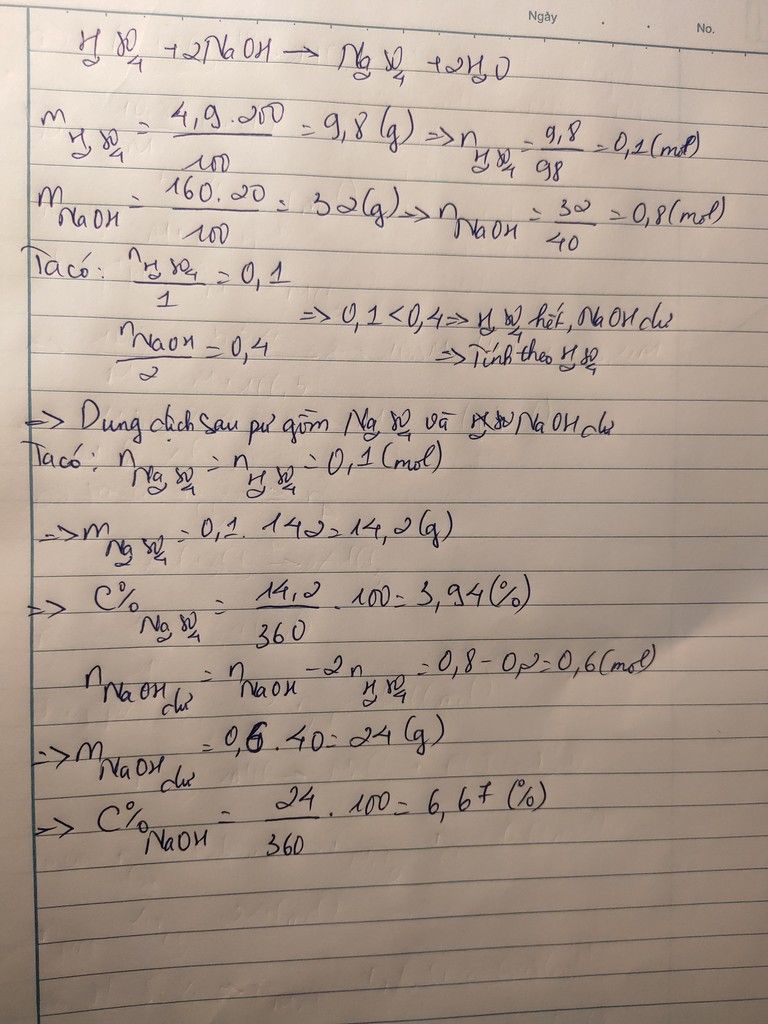 Ngày . . No.
H₂SO₄ + 2NaOH → Na₂SO₄ + 2H₂O
m H₂SO₄ = 4,9 . 200 / 100 = 9,8 (g) => n H₂SO₄ = 9,8 / 98 = 0,1 (mol)
m NaOH = 160 . 20 / 100 = 32 (g) => n NaOH = 32 / 40 = 0,8 (mol)
Ta có: n H₂SO₄ / 1 = 0,1
=> 0,1 < 0,4 => H₂SO₄ hết, NaOH dư
n NaOH / 2 = 0,4
=> Tính theo H₂SO₄
=> Dung dịch sau pư gồm Na₂SO₄ và NaOH dư
Ta có: n Na₂SO₄ = n H₂SO₄ = 0,1 (mol)
=> m Na₂SO₄ = 0,1 . 142 = 14,2 (g)
=> C% Na₂SO₄ = 14,2 / 360 . 100 = 3,94 (%)
n NaOH dư = n NaOH - 2 n H₂SO₄ = 0,8 - 0,2 = 0,6 (mol)
=> m NaOH dư = 0,6 . 40 = 24 (g)
=> C% NaOH = 24 / 360 . 100 = 6,67 (%)